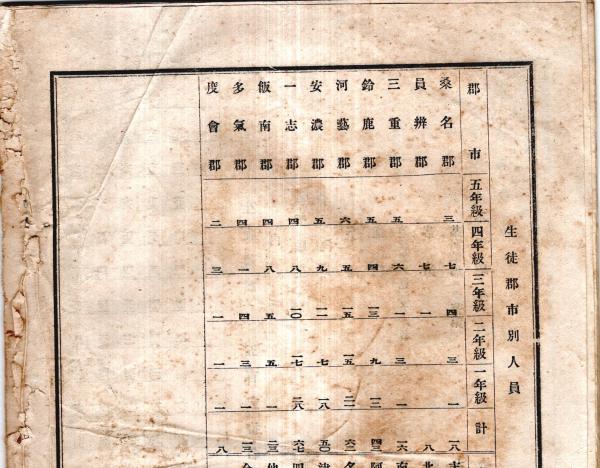 生徒郡市別人員
郡市 五年級 四年級 三年級 二年級 一年級 計
桑名郡 三 七 四 三 一 一八
員辨郡 七 一 八
三重郡 五 六 一 三 一 一六
鈴鹿郡 五 四 一三 九 一二 四三
河藝郡 六 五 一五 一五 二一 六二
安濃郡 五 九 一一 七 一八 五〇
一志郡 四 八 一〇 一七 二八 六七
飯南郡 四 八 五 五 一 二三
多氣郡 四 一 四 三 一 一三
度會郡 二 三 一 一 一 八